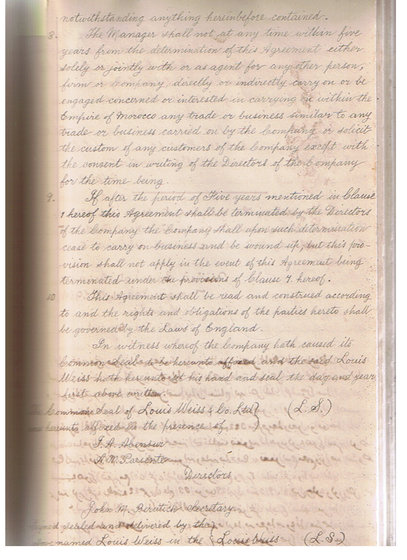 notwithstanding anything hereinbefore contained.
8. The Manager shall not at any time within five
years from the determination of this Agreement either
solely or jointly with or as agent for any other person,
firm or Company, directly or indirectly carry on or be
engaged concerned or interested in carrying on within the
Empire of Morocco any trade or business similar to any
trade or business carried on by the Company or solicit
the custom of any customers of the Company except with
the consent in writing of the Directors of the Company
for the time being.
9. If after the period of Five years mentioned in Clause
1 hereof this Agreement shall be terminated by the Directors
of the Company the Company shall upon such determination
cease to carry on business and be wound up, but this pro-
vision shall not apply in the event of this Agreement being
terminated under the provisions of Clause 7 hereof.
10. This Agreement shall be read and construed according
to and the rights and obligations of the parties hereto shall
be governed by the Laws of England.
In witness whereof the Company hath caused its
Common Seal to be hereunto affixed and the said Louis
Weiss hath hereunto set his hand and seal the day and year
first above written
The Common Seal of Louis Weiss & Co. Ltd (L.S.)
was hereunto affixed in the presence of
Directors
John M. Secretary
Signed sealed and delivered by the
above named Louis Weiss in the (Louis Weiss (L.S.)